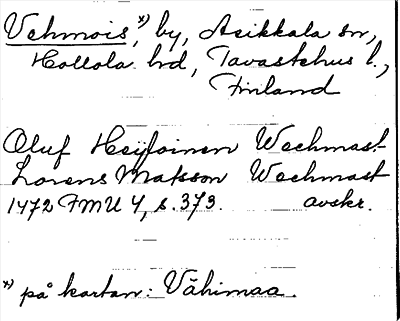 Vehmois,*) by, Asikkala sn,
Hollola hd, Tavastehus l.,
Finland
Oluf Heyloinen Wechmast
Lorens Matsson Wechmast
1472 FMU 4, s. 373. avskr.
*) på kartan: Vähimaa.